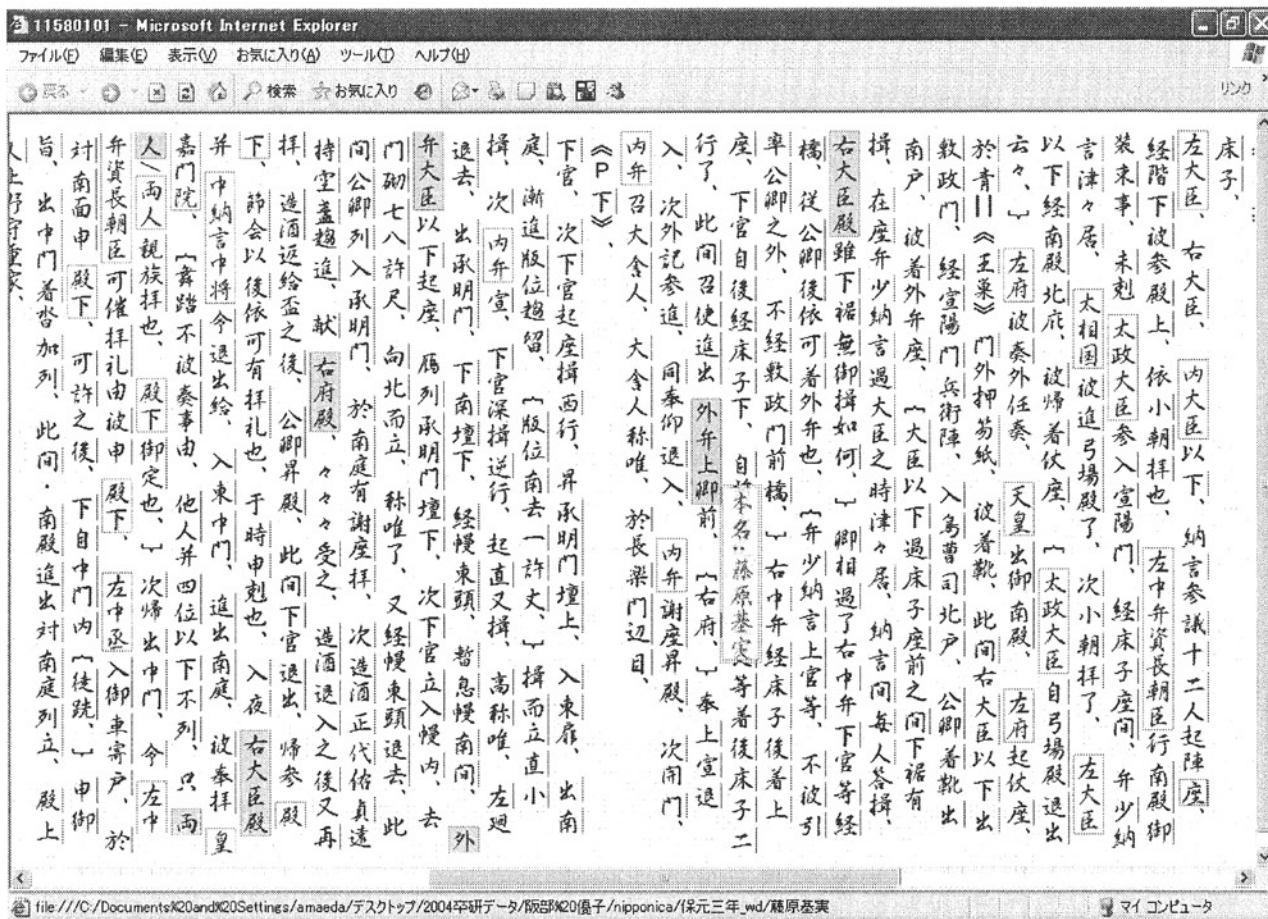 11580101 - Microsoft Internet Explorer
ファイル(F) 編集(E) 表示(V) お気に入り(A) ツール(T) ヘルプ(H)
戻る 検索 お気に入り リンク
床子、
左大臣、右大臣、内大臣以下、納言参議十二人起陣座、
経階下被参殿上、依小朝拝也、左中弁資長朝臣行南殿御
装束事、未剋太政大臣参入宣陽門、経床子座間、弁少納
言津々居、太相国被進弓場殿了、次小朝拝了、左大臣
以下経南殿北庇、被帰着仗座、︷太政大臣自弓場殿退出
云々、︸左府被奏外任奏、天皇出御南殿、左府起仗座、
於青||《王粟》門外押笏紙、被着靴、此間右大臣以下出
敷政門、経宣陽門兵衛陣、入鳥曹司北戸、公卿着靴出
南戸、被着外弁座、︷大臣以下過床子座前之間下裾有
揖、在座弁少納言過大臣之時津々居、納言間毎人答揖、
右大臣殿雖下裾無御揖如何、︸卿相過了右中弁下官等経
橋、従公卿後依可着外弁也、︷弁少納言上官等、不被引
率公卿之外、不経敷政門前橋、︸右中弁経床子後着上
座、下官自後経床子下、自 本名：藤原基実 等着後床子二
行了、此間召使進出外弁上卿前、︷右府、︸奉上宣退
入、次外記参進、同奉仰退入、内弁謝座昇殿、次開門、
内弁召大舎人、大舎人称唯、於長楽門辺〓、
《P下》、
下官、次下官起座揖西行、昇承明門壇上、入東扉、出南
庭、漸進版位趨留、︷版位南去一許丈、︸揖而立直小
揖、次内弁宣、下官深揖逆行、起直又揖、高称唯、左廻
退去、出承明門、下南壇下、経幔東頭、暫息幔南間、外
弁大臣以下起座、雁列承明門壇下、次下官立入幔内、去
門砌七八許尺、向北而立、称唯了、又経幔東頭退去、此
間公卿列入承明門、於南庭有謝座拝、次造酒正代佑貞遠
持空盞趨進、献右府殿、々々々受之、造酒退入之後又再
拝、造酒返給盃之後、公卿昇殿、此間下官退出、帰参殿
下、節会以後依可有拝礼也、于時申剋也、入夜右大臣殿
并中納言中将今退出給、入東中門、進出南庭、被奉拝皇
嘉門院、︷舞踏不被奏事由、他人并四位以下不列、只両
人＼両人親族拝也、殿下御定也、︸次帰出中門、今左中
弁資長朝臣可催拝礼由被申殿下、左中丞入御車寄戸、於
対南面申殿下、可許之後、下自中門内︷徒跣、︸申御
旨、出中門着沓加列、此間・南殿進出対南庭列立、殿上
file:///C:/Documents%20and%20Settings/amaeda/デスクトップ/2004卒研データ/阪部%20優子/nipponica/保元三年_wd/藤原基実 マイ コンピュータ